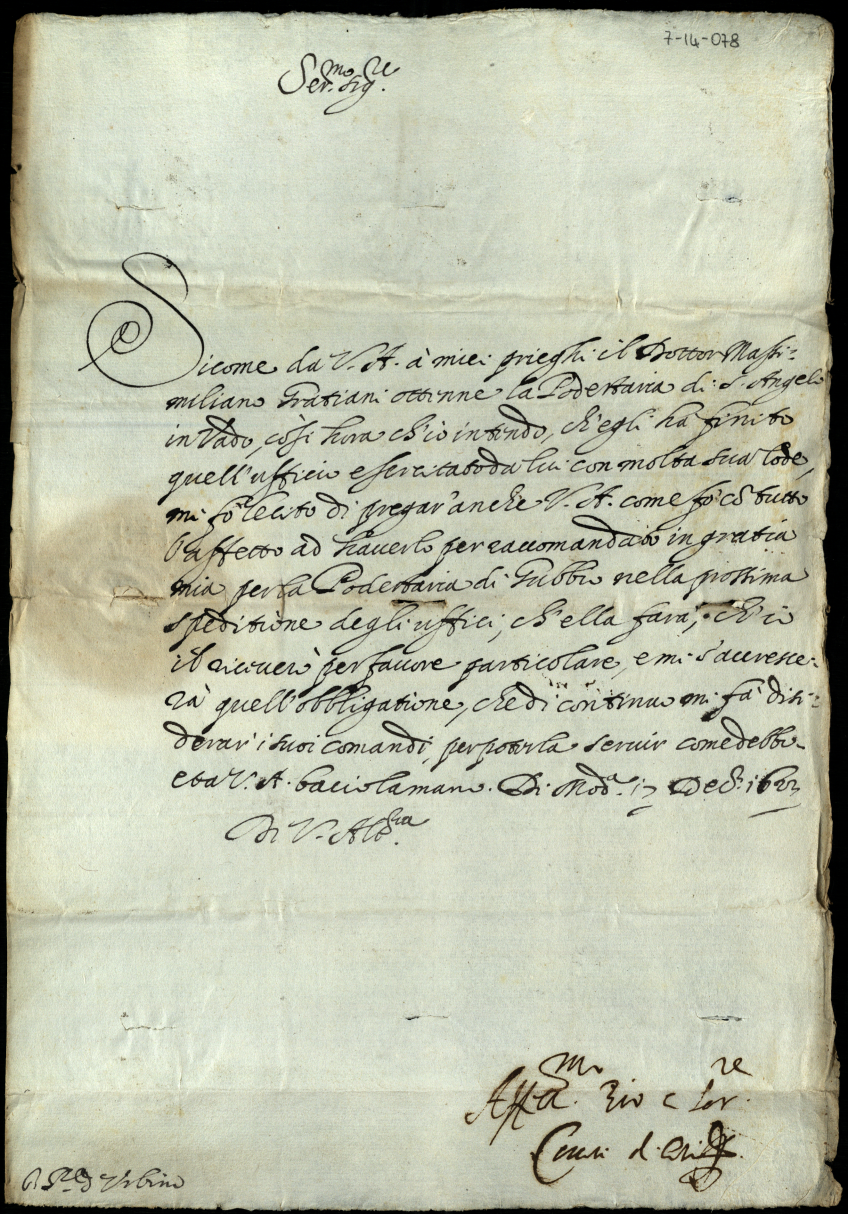 7-14-078
Ser.mo Sig.re
Sicome da V. A. à miei prieghi il Dottor Massi-
miliano Gratiani ottenne la Podestaria di S. Angelo
in Vado, così hora ch'io intendo, ch'egli hà finito
quell'ufficio essercitato da lui con molta sua lode,
mi fò lecito di pregar' anche V. A. come fò cõ tutto
l'affetto ad haverlo per raccomandato in gratia
mia per la Podestaria di Gubbio nella prossima
speditione degli uffici, ch'ella farà, ch'io
il riceverò per favore particolare, e mi s'accresce-
rà quell'obbligatione, che di continuo mi fà disi-
derar' i suoi comandi, per poterla servir come debbo.
e a V. A. bacio la mano. Di Mod.a 17 Dec.
Di V. Alt.za
Aff.mo Zio e Ser.re
Cesare d'Este
S.r D. d'Urbino